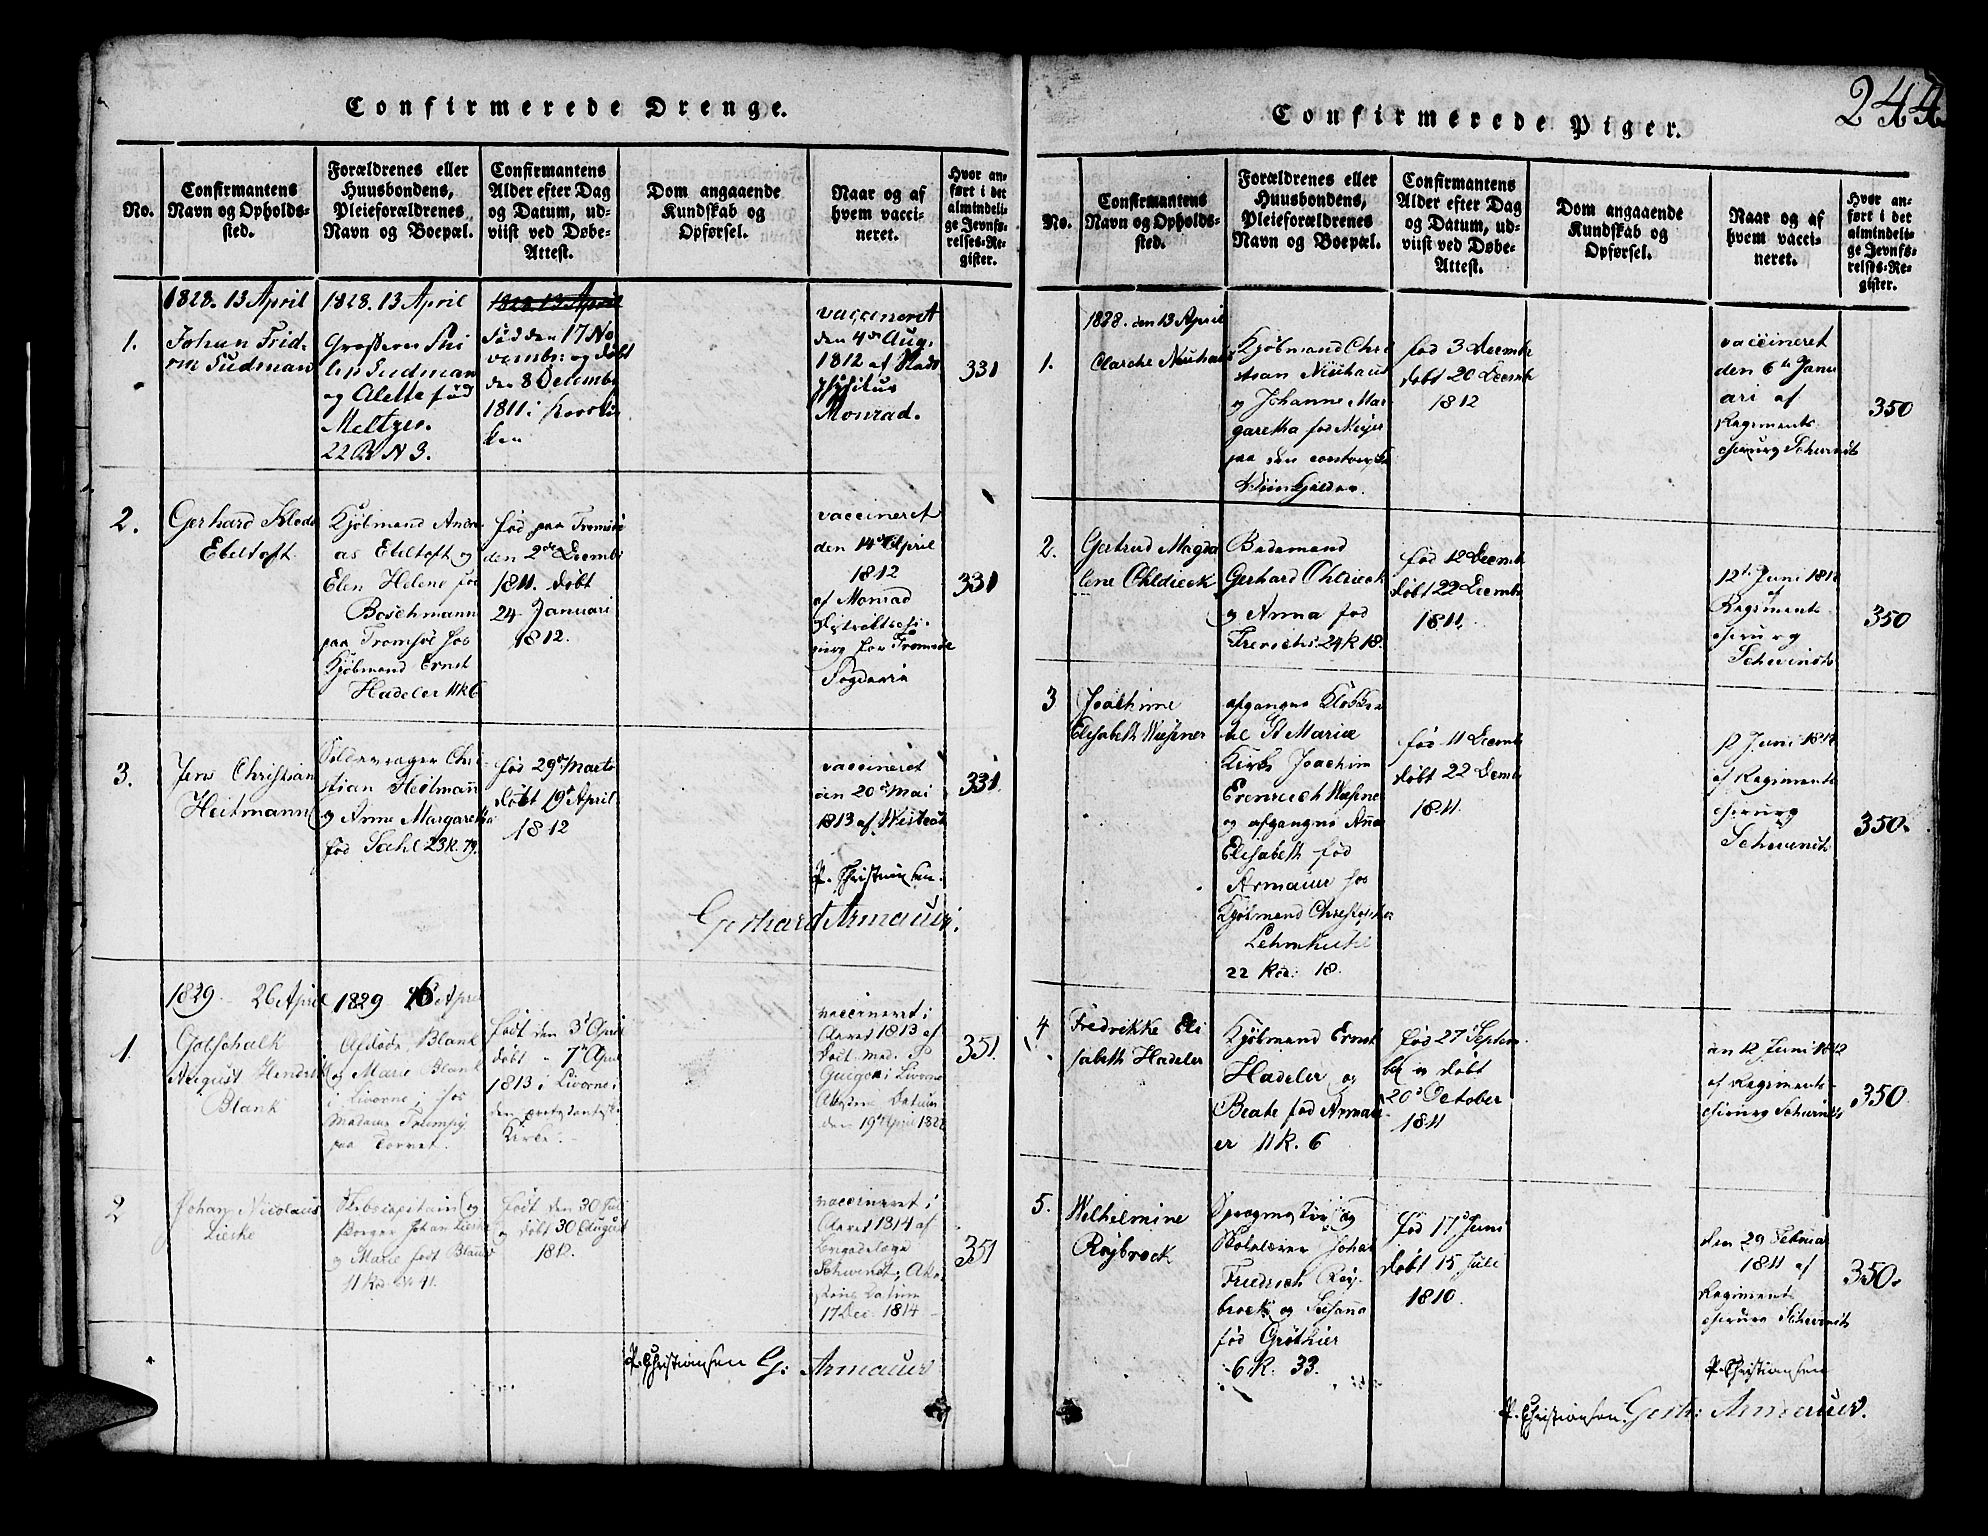 244
Confirmerede Drenge.
No.
Confirmantens
Navn og Opholds-
sted.
Forældrenes eller
Huusbondens,
Pleieforældrenes
Navn og Boepæl.
Confirmantens
Alder efter Dag
og Datum, ud-
viist ved Døbe-
Attest.
Dom angaaende
Kundskab og
Opførsel.
Naar og af
hvem vacci-
neret.
Hvor an-
ført i det
almindeli-
ge Jevnfø-
relses-Re-
gister.
1828. 13 April
1.
Johan Frid-
rin Sudman
1828. 13 April
Sudman
og Aletta fød
Meltzer.
22 R N 3.
1828 13 April
fød den 17 No
vembr: og døbt
den 8 Decembr
1811 i Kors Kir
ken
vaccineret
den 4de Aug.
1812 af Stads
Physicus
Monrad.
331
2.
Gerhard
Ebeltoft.
Kjøbmand Andre
as Ebeltoft og
Elen Helene fød
Boschmann
paa Tromsøe hos
Kjøbmand Ernst
Hadeler 11 R 6
fød paa Tromsøe
den 2de Decembr
1811. døbt
24 Januari
1812.
vaccineret
den 14de April
1812
af Monrad
for Tromsøe
Fogderie
331
3.
Jens Christian
Heitmann
Chri
stian Heitmañ
og Anne Margaretha
fød Sahl 23 R. 79.
fød 29de Marts
døbt 19de April
1812
vaccineret
den 20de Mai
1813 af
331.
P. Christiansen.
Gerhard Armauer.
1829 26 April
1.
Gotschalk
August Hendrik
Blank
1829 26 April
Afdøde Blank
og Marie Blank
i Livorne; hos
Madame Trumpy
paa Torvet.
født den 3de April
døbt 7de April
1813 i Livorne i
den protestantisk
Kirke.
vaccineret i
Aaret 1813 af
Guigoni Livorne
Attestens Datum
den 19de April
351.
2
Johan Nicolaus
Lieske
Skibscapitain og
Borger Johan Lieske
og Marie født Blauw
11 Rod N 41.
født den 30 Juli
og døbt 30 August
vaccineret i
Aaret 1814 af
Brigadelæge
Schwindt, At-
testens Datum
17 Dec. 1814
351
P. Christiansen G: Armauer
Confirmerede Piger.
No.
Confirmantens
Navn og Opholds-
sted.
Forældrenes eller
Huusbondens,
Pleieforældrenes
Navn og Boepæl.
Confirmantens
Alder efter Dag
og Datum, ud-
viist ved Døbe-
Attest.
Dom angaaende
Kundskab og
Opførsel.
Naar og af
hvem vacci-
neret.
Hvor an-
ført i det
almindeli-
ge Jevnfø-
relses-Re-
gister.
1828. den 13 April
1.
Clarche Neuhaus
Kjøbmand Chri
stian Neuhaus
og Johanne Mar-
garetha fød Meyer
paa den
fød 3 Decembr
døbt 20 Decembr
1812
vaccineret
den 6te Janu
ari af
Regiments
chirurg Schwindt
350
2.
Gertrud Magda
lene Ohldieck
Bademand
Gerhard Ohldieck
og Anna fød
Frerichs 24 R 18.
fød 12 Decembr
døbt 22 Decembr
1811.
12te Juni 1812
af
Regiments-
chirurg
Schwindt
350
3
Joachime
Elisabeth Wesner
afgangne Klokker
til St Mariæ
Kirke Joachim
Erenreich Wesner
og afgangne Anna
Elisabeth fød
Armauer hos
Kjøbmand Christopher
Lehmkuhl
22 Rod: 18.
fød 11 Decembr
døbt 22 Decembr
1811.
12 Juni 1812
af Regiments
chirurg
Schwindt
350.
4
Fredrikke Eli
sabeth Hadeler
Kjøbmand Ernst
Hadeler og
Beate fød Armau-
er 11 R. 6
fød 27 Septem
ber og døbt
20de October
1811
den 12 Juni 1812
af Regiments-
chirurg Schwindt
350.
5.
Wilhelmine
Reybrock
Sprogmester og
Skolelærer Johan
Fredrich Rey-
brock og Susaña
fød Grøthier
6 R. 33.
fød 17de Juni
døbt 15 Juli
1810.
den 29 Februar
1811 af
Regiments
chirurg Schwindt
350.
P. Christiansen
P. Christiansen. Gerh: Armauer.